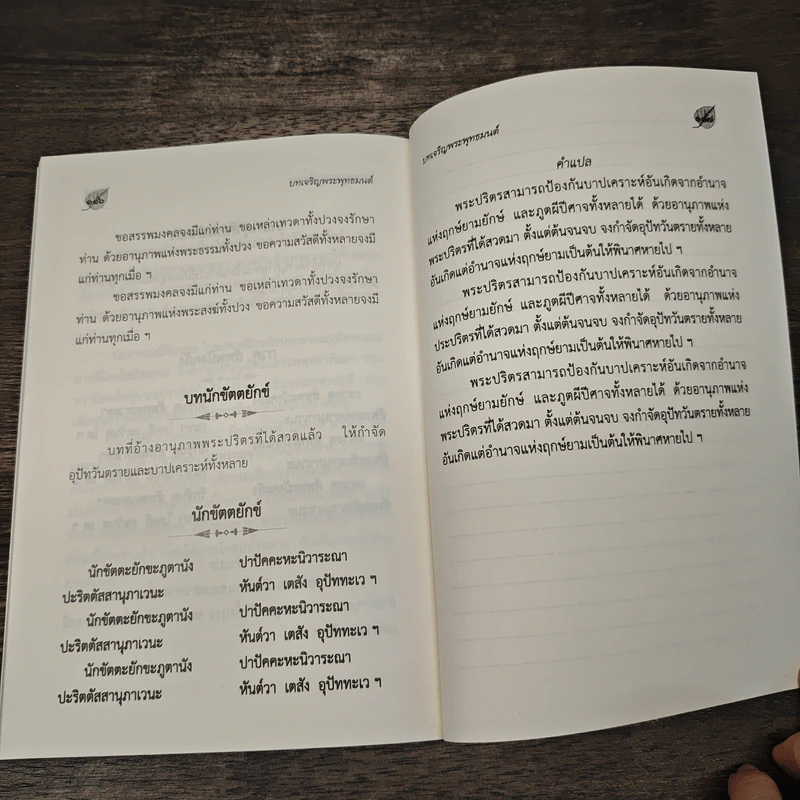 ๑๐๖
บทเจริญพระพุทธมนต์
ขอสรรพมงคลจงมีแก่ท่าน ขอเหล่าเทวดาทั้งปวงจงรักษา
ท่าน ด้วยอานุภาพแห่งพระธรรมทั้งปวง ขอความสวัสดีทั้งหลายจงมี
แก่ท่านทุกเมื่อ ฯ
ขอสรรพมงคลจงมีแก่ท่าน ขอเหล่าเทวดาทั้งปวงจงรักษา
ท่าน ด้วยอานุภาพแห่งพระสงฆ์ทั้งปวง ขอความสวัสดีทั้งหลายจงมี
แก่ท่านทุกเมื่อ ฯ
บทนักขัตตยักข์
บทที่อ้างอานุภาพพระปริตรที่ได้สวดแล้ว ให้กำจัด
อุปัทวันตรายและบาปเคราะห์ทั้งหลาย
นักขัตตยักข์
นักขัตตะยักขะภูตานัง ปาปัคคะหะนิวาระณา
ปะริตตัสสานุภาเวนะ หันต์วา เตสัง อุปัททะเว ฯ
นักขัตตะยักขะภูตานัง ปาปัคคะหะนิวาระณา
ปะริตตัสสานุภาเวนะ หันต์วา เตสัง อุปัททะเว ฯ
นักขัตตะยักขะภูตานัง ปาปัคคะหะนิวาระณา
ปะริตตัสสานุภาเวนะ หันต์วา เตสัง อุปัททะเว ฯ
บทเจริญพระพุทธมนต์
๑๐๗
คำแปล
พระปริตรสามารถป้องกันบาปเคราะห์อันเกิดจากอำนาจ
แห่งฤกษ์ยามยักษ์ และภูตผีปีศาจทั้งหลายได้ ด้วยอานุภาพแห่ง
พระปริตรที่ได้สวดมา ตั้งแต่ต้นจนจบ จงกำจัดอุปัทวันตรายทั้งหลาย
อันเกิดแต่อำนาจแห่งฤกษ์ยามเป็นต้นให้พินาศหายไป ฯ
พระปริตรสามารถป้องกันบาปเคราะห์อันเกิดจากอำนาจ
แห่งฤกษ์ยามยักษ์ และภูตผีปีศาจทั้งหลายได้ ด้วยอานุภาพแห่ง
ประปริตรที่ได้สวดมา ตั้งแต่ต้นจนจบ จงกำจัดอุปัทวันตรายทั้งหลาย
อันเกิดแต่อำนาจแห่งฤกษ์ยามเป็นต้นให้พินาศหายไป ฯ
พระปริตรสามารถป้องกันบาปเคราะห์อันเกิดจากอำนาจ
แห่งฤกษ์ยามยักษ์ และภูตผีปีศาจทั้งหลายได้ ด้วยอานุภาพแห่ง
พระปริตรที่ได้สวดมา ตั้งแต่ต้นจนจบ จงกำจัดอุปัทวันตรายทั้งหลาย
อันเกิดแต่อำนาจแห่งฤกษ์ยามเป็นต้นให้พินาศหายไป ฯ